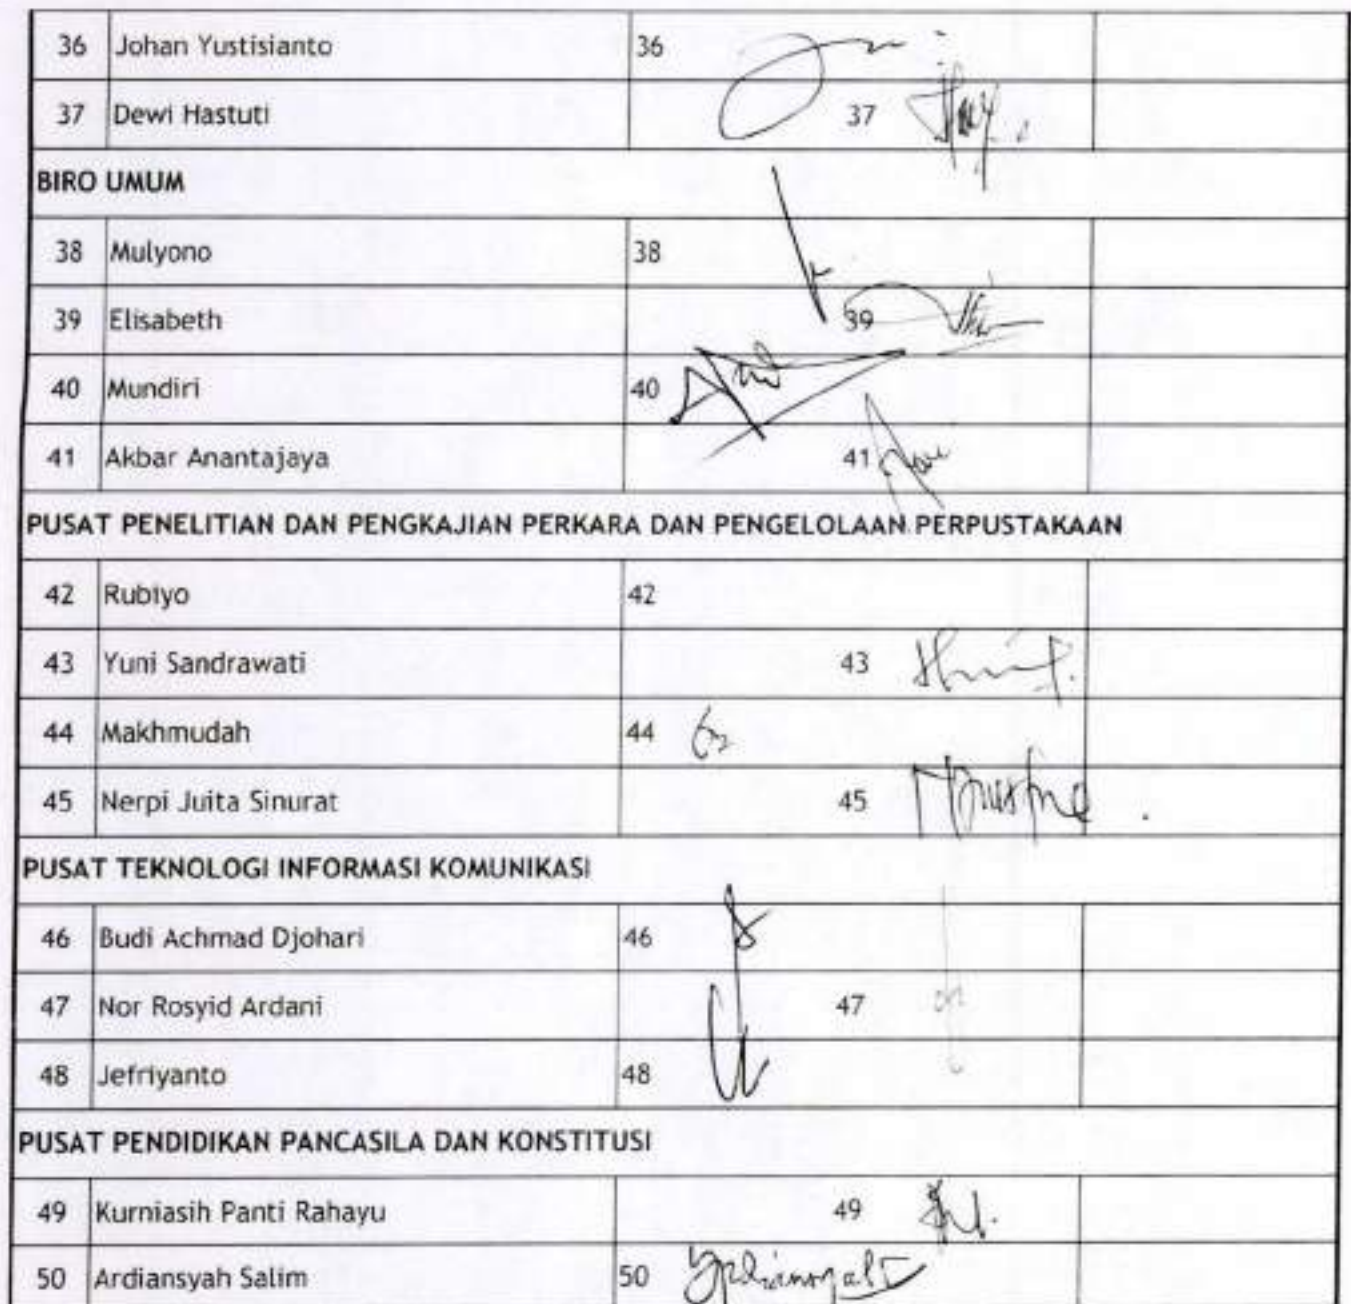 36 Johan Yustisianto 36
37 Dewi Hastuti 37
BIRO UMUM
38 Mulyono 38
39 Elisabeth 39
40 Mundiri 40
41 Akbar Anantajaya 41
PUSAT PENELITIAN DAN PENGKAJIAN PERKARA DAN PENGELOLAAN PERPUSTAKAAN
42 Rubiyo 42
43 Yuni Sandrawati 43
44 Makhmudah 44
45 Nerpi Juita Sinurat 45
PUSAT TEKNOLOGI INFORMASI KOMUNIKASI
46 Budi Achmad Djohari 46
47 Nor Rosyid Ardani 47
48 Jefriyanto 48
PUSAT PENDIDIKAN PANCASILA DAN KONSTITUSI
49 Kurniasih Panti Rahayu 49
50 Ardiansyah Salim 50